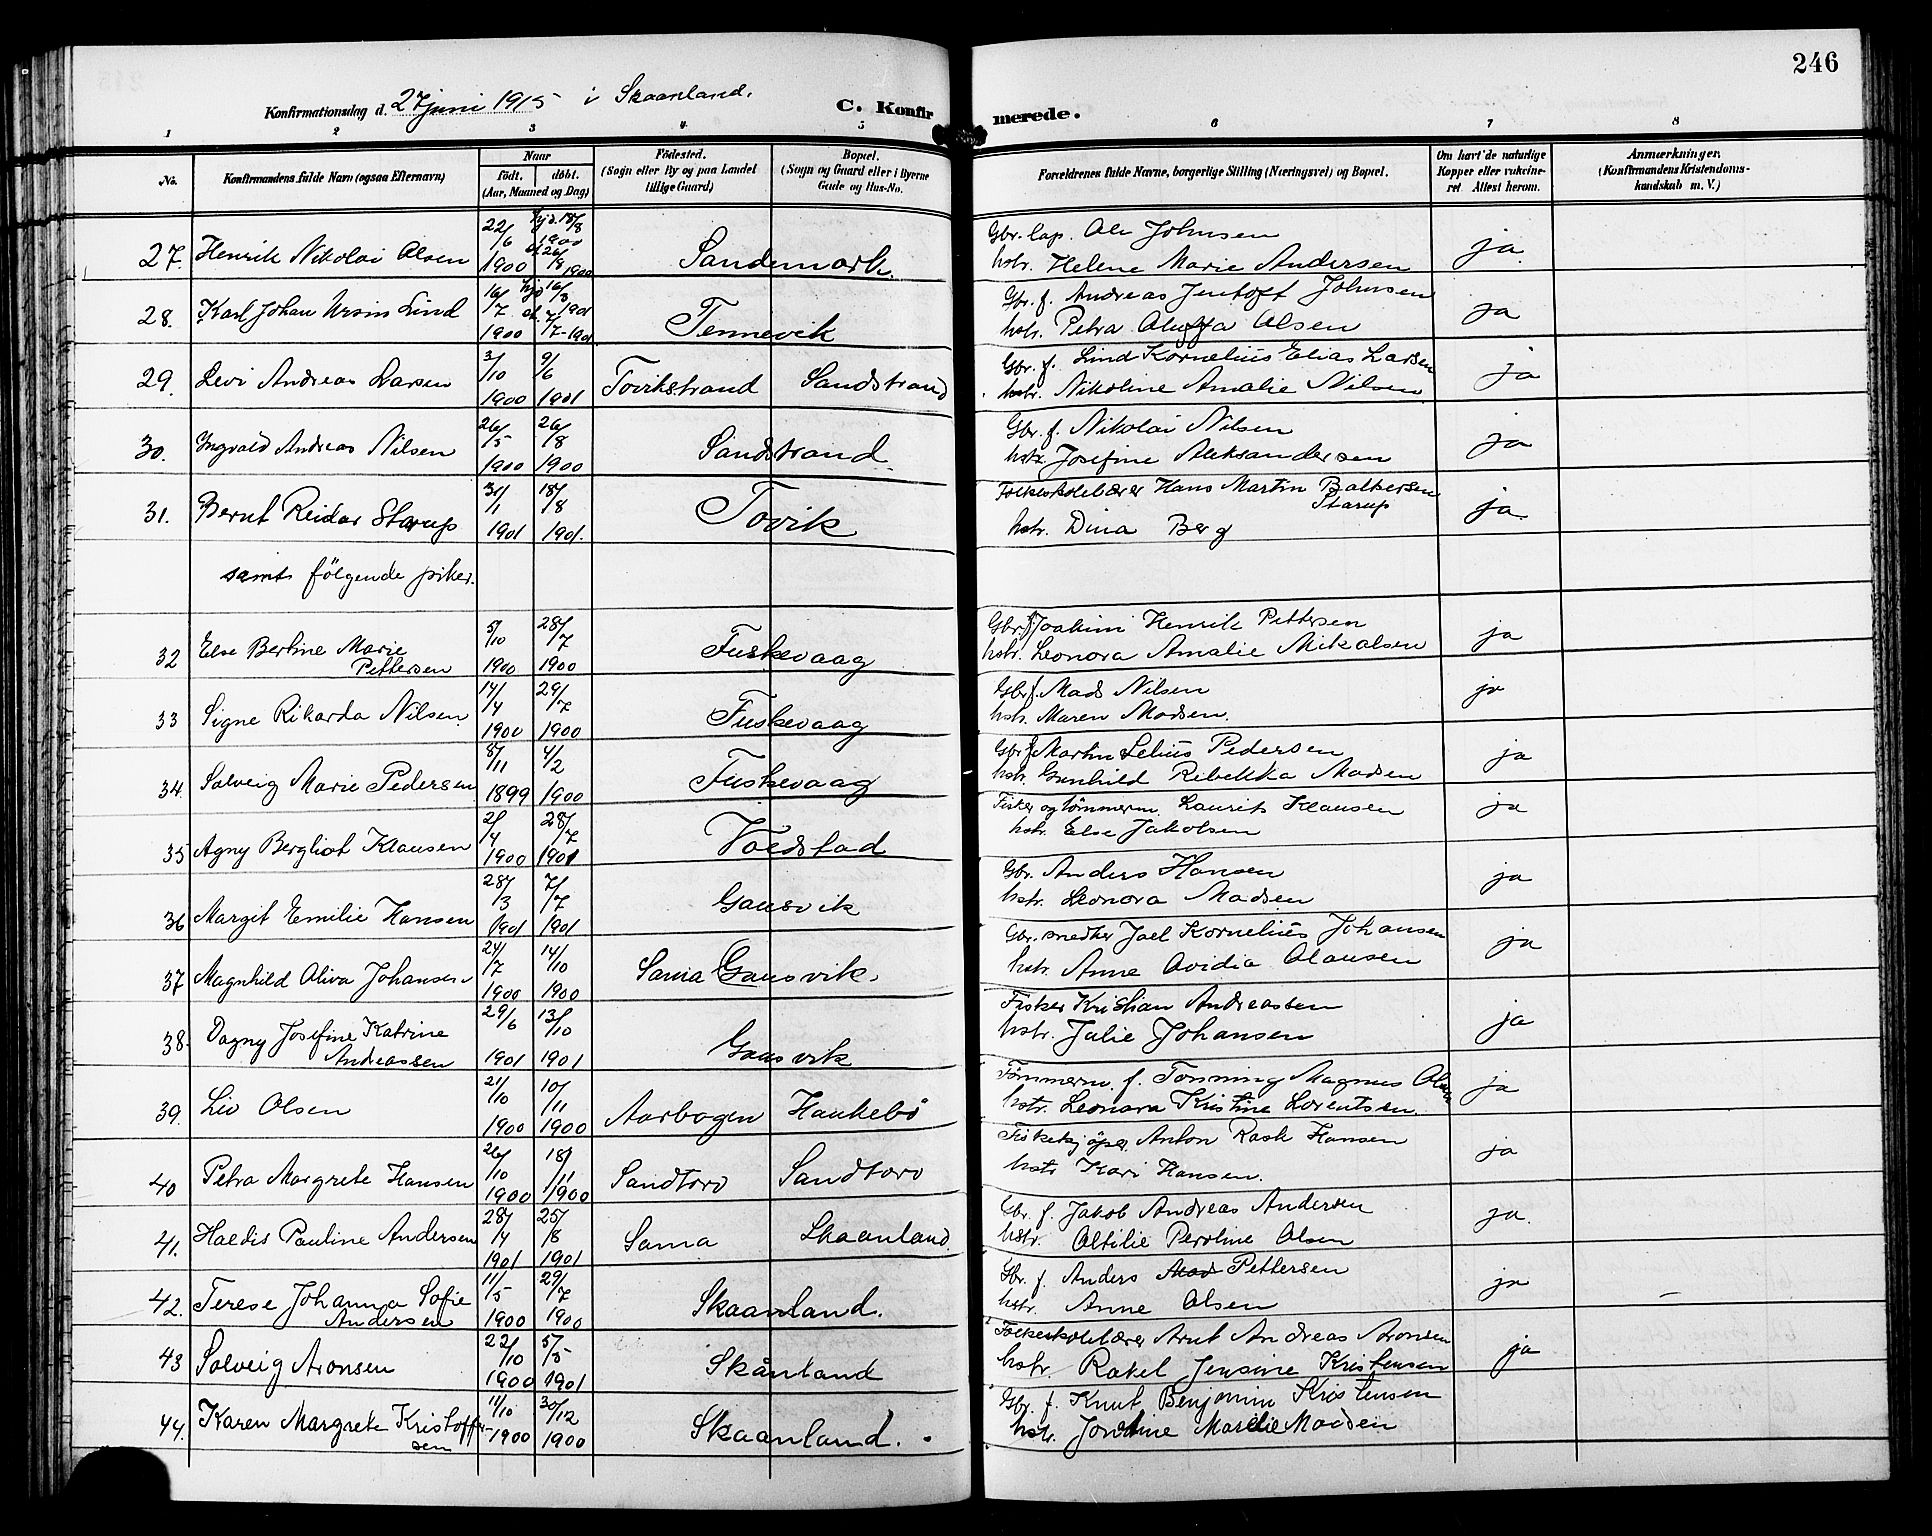 246
Konfirmationsdag d. 27 juni 1915 i Skaanland.
C. Konfirmerede.
1 2 3 4 5 6 7 8
No.
Konfirmandens fulde Navn (ogsaa Efternavn)
Naar
født. døbt.
(Aar, Maaned og Dag)
Fødested.
(Sogn eller By og paa Landet
tillige Gaard)
Bopæl.
(Sogn og Gaard eller i Byerne
Gade og Hus-No.
Forældrenes fulde Navne, borgerlige Stilling (Næringsvei) og Bopæl.
Om havt de naturlige
Kopper eller vakcine-
ret Attest herom.
Anmærkninger.
(Konfirmandens Kristendoms-
kundskab m. V.)
27. Henrik Nikolai Olsen 22/6 1900 hjd. 18/8 1900 26/8 1900 Sandemark.
Gbr. lap. Ole Johnsen
hstr. Helene Marie Andersen ja
28. Karl Johan Ursin Lind 16/7 1900 hjd 16/3 1901 7/7-1901 Tennevik
Gbr. f. Andreas Jentoft Johnsen
hstr. Petra Olsen ja
29. Levi Andreas Larsen 3/10 1900 9/6 1901 Tovikstrand Sandstrand
Gbr. f. Lind Kornelius Elias Larsen
hstr. Nikoline Amalie Nilsen ja
30. Ingvald Andreas Nilsen 26/5 1900 26/8 1900 Sandstrand
Gbr. f. Nikolai Nilsen
hstr. Josefine Aleksandersen ja
31. Bernt Reidar Starup 31/1 1901 18/8 1901. Tovik
Folkeskolelærer Hans Martin Baltsersen
Starup
hstr. Dina Berg ja.
samt følgende piker.
32 Else Bertine Marie
Pettersen 5/10 1900 28/7 1900 Fuskevaag
Gbr. f. Joakim Henrik Pettersen
hstr. Leonora Amalie Mikalsen ja
33 Signe Rikarda Nilsen 14/4 1900 29/7 1900 Fuskevaag
Gbr f. Mads Nilsen
hstr. Maren Madsen. ja
34. Solveig Marie Pedersen 8/11 1899 4/2 1900 Fuskevaag
Gbr f. Martin Selius Pedersen
hstr. Gunhild Rebekka Madsen ja
35 Agny Bergliot Klausen 2/4 1900 28/7 1901 Voldstad
Fisker og tømmerm. Laurits Klausen
hstr. Else Jakobsen ja
36 Margit Emilie Hansen 28/3 1901 7/7 1901 Gausvik
Gbr. Anders Hansen
hstr. Leonora Madsen ja
37 Magnhild Oliva Johansen 24/7 1900 14/10 1900 Sama Gausvik.
Gbr. snedker Joel Kornelius Johansen
hstr. Anne Ovidia Olausen ja
38. Dagny Josefine Katrine
Andreassen 29/6 1901 13/10 1901 Gausvik
Fisker Kristian Andreassen
hstr. Julie Johansen ja
39. Liv Olsen 21/10 1900 10/11 1900 Aarbogen Haukebø
Tømmerm. f. Tonning Magnus Olsen
hstr. Leonora Kristine Lorentsen. ja
40 Petra Margrete Hansen 26/10 1900 18/11 1900 Sandtorv Sandtorv
Fiskekjøper Anton Rask Hansen
hstr Kari Hansen. ja
41. Haldis Pauline Andersen 28/4 1901 25/8 1901 Sama Skaanland.
Gbr. f. Jakob Andreas Andersen
hstr. Otilie Peroline Olsen ja.
42. Terese Johanna Sofie
Andersen 11/5 1900 29/7 1900 Skaanland.
Gbr. f. Anders Pettersen
hstr. Anne Olsen ja
43 Solveig Aronsen 22/10 1900 5/5 1901 Skånland
Folkeskolelærer Arnt Andreas Aronsen
hstr. Rakel Jensine Kristensen ja
44. Karen Margrete Kristoffer-
sen 11/10 1900 30/12 1900 Skaanland.
Gbr. f. Knut Benjamin Kristensen
hstr. Madsen